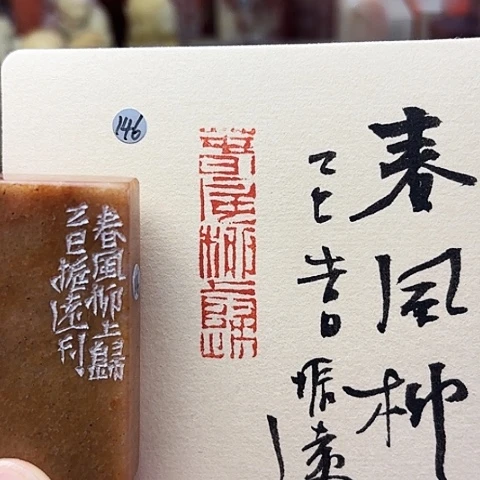 春風柳
乙巳吉日振遠
春風柳上歸
146
春風柳上歸
乙巳振遠刊